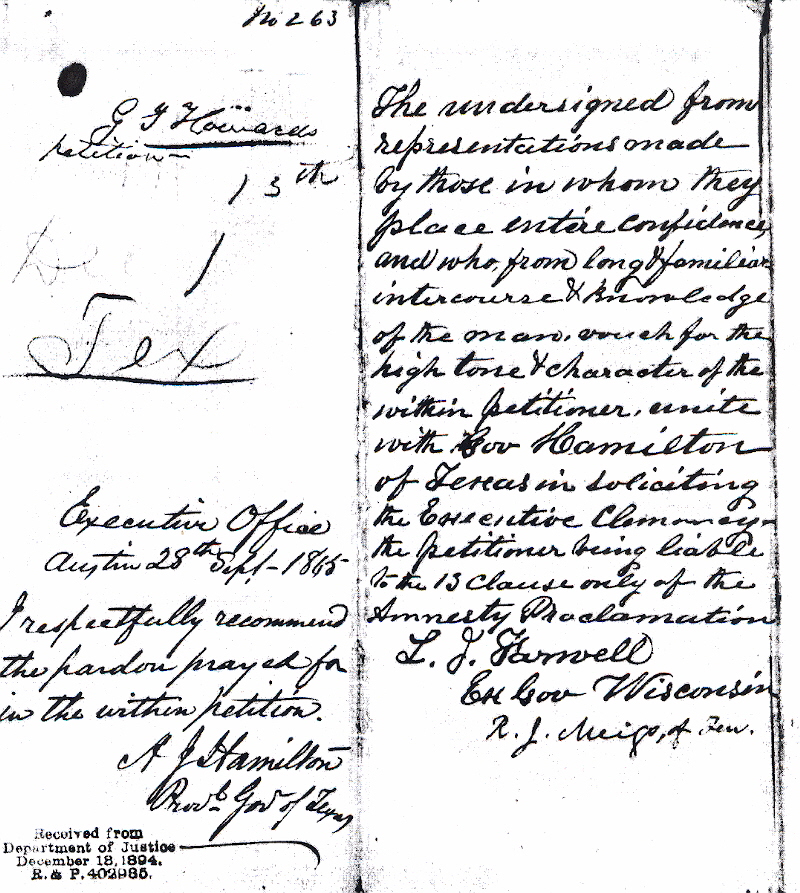 No 263
G F Howards
petition
13th
De 1
Tex
Executive Office
Austin 28th Sept - 1865
I respectfully recommend
the pardon prayed for
in the within petition.
A J Hamilton
Provl Govr of Texas
Received from
Department of Justice
December 18, 1894.
R. & P. 402985.
The undersigned from
representations made
by those in whom they
place entire confidence,
and who, from long & familiar
intercourse & knowledge
of the man, vouch for the
high tone & character of the
within petitioner, unite
with Gov Hamilton
of Texas in soliciting
the Executive Clemency -
the petitioner being liable
to the 13 Clause only of the
Amnesty Proclamation
L. J. Farwell
Ex Gov Wisconsin
R. J. Meigs, of Ten.